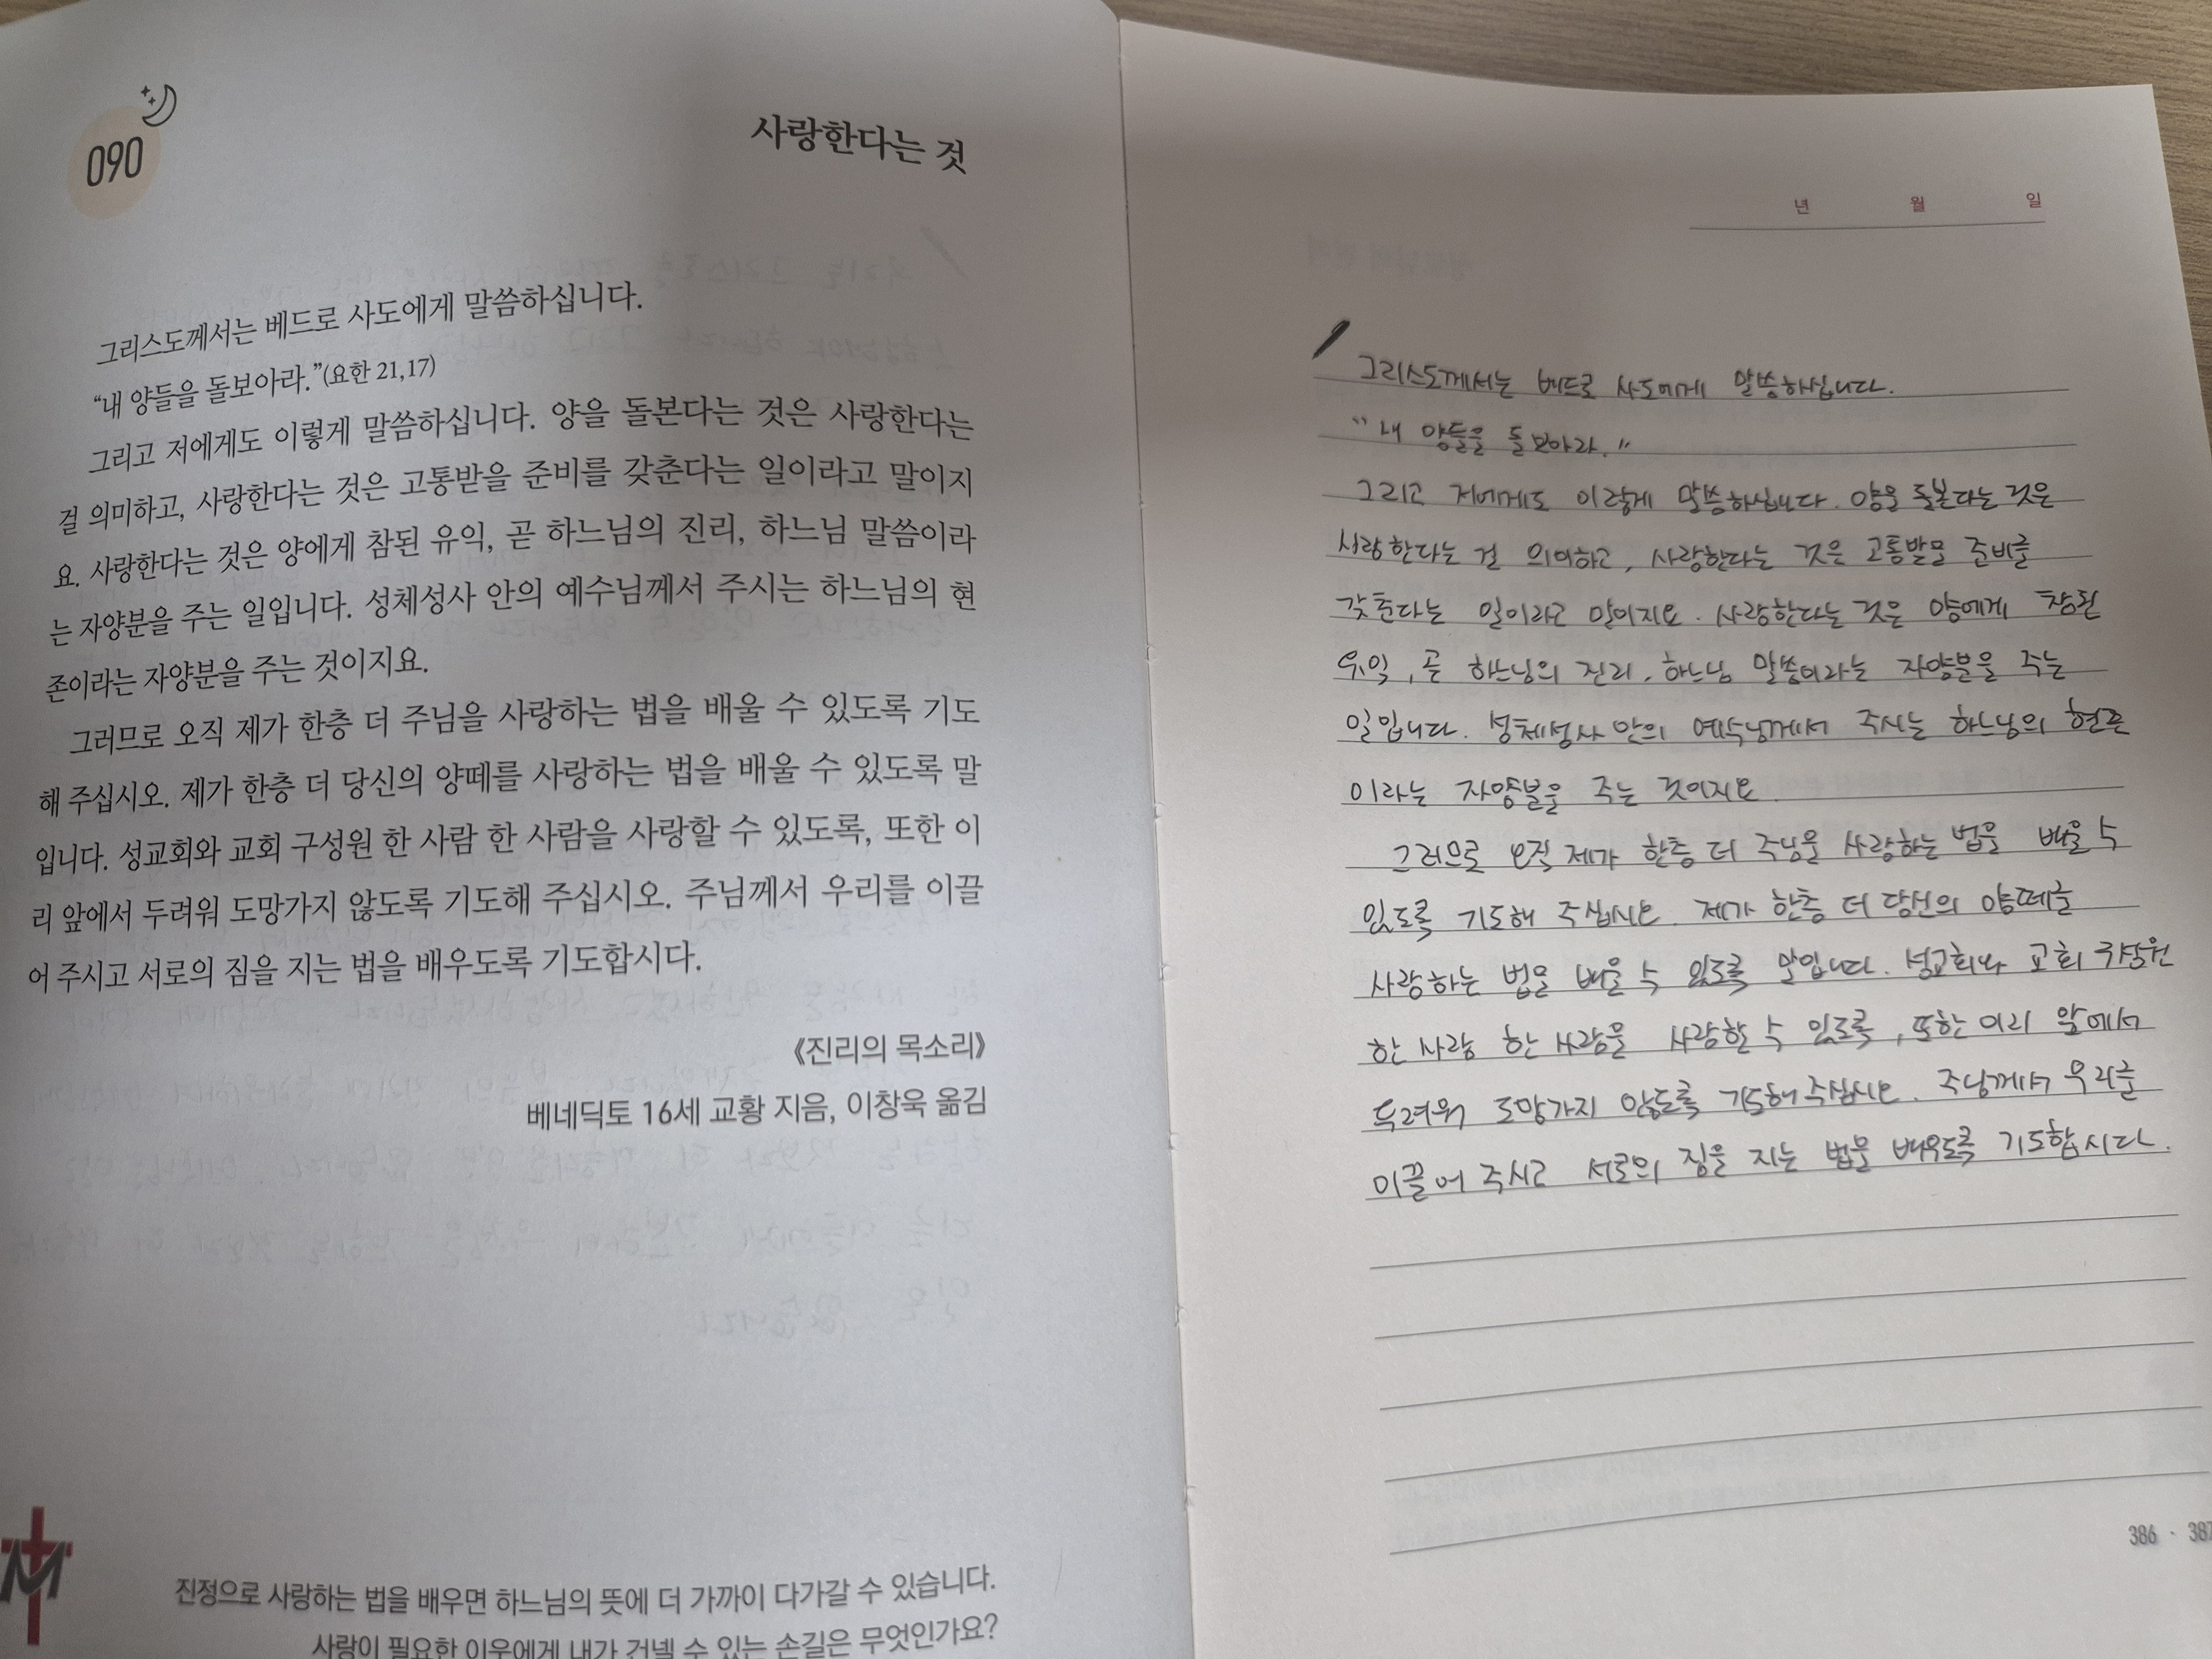 090
사랑한다는 것
그리스도께서는 베드로 사도에게 말씀하십니다.
“내 양들을 돌보아라.”(요한 21,17)
그리고 저에게도 이렇게 말씀하십니다. 양을 돌본다는 것은 사랑한다는
걸 의미하고, 사랑한다는 것은 고통받을 준비를 갖춘다는 일이라고 말이지
요. 사랑한다는 것은 양에게 참된 유익, 곧 하느님의 진리, 하느님 말씀이라
는 자양분을 주는 일입니다. 성체성사 안의 예수님께서 주시는 하느님의 현
존이라는 자양분을 주는 것이지요.
그러므로 오직 제가 한층 더 주님을 사랑하는 법을 배울 수 있도록 기도
해 주십시오. 제가 한층 더 당신의 양떼를 사랑하는 법을 배울 수 있도록 말
입니다. 성교회와 교회 구성원 한 사람 한 사람을 사랑할 수 있도록, 또한 이
리 앞에서 두려워 도망가지 않도록 기도해 주십시오. 주님께서 우리를 이끌
어 주시고 서로의 짐을 지는 법을 배우도록 기도합시다.
《진리의 목소리》
베네딕토 16세 교황 지음, 이창욱 옮김
진정으로 사랑하는 법을 배우면 하느님의 뜻에 더 가까이 다가갈 수 있습니다.
사랑이 필요한 이웃에게 내가 건넬 수 있는 손길은 무엇인가요?
년 월 일
그리스도께서는 베드로 사도에게 말씀하십니다.
“내 양들을 돌보아라.”
그리고 저에게도 이렇게 말씀하십니다. 양을 돌본다는 것은
사랑한다는 걸 의미하고, 사랑한다는 것은 고통받을 준비를
갖춘다는 일이라고 말이지요. 사랑한다는 것은 양에게 참된
유익, 곧 하느님의 진리, 하느님 말씀이라는 자양분을 주는
일입니다. 성체성사 안의 예수님께서 주시는 하느님의 현존
이라는 자양분을 주는 것이지요.
그러므로 오직 제가 한층 더 주님을 사랑하는 법을 배울 수
있도록 기도해 주십시오. 제가 한층 더 당신의 양떼를
사랑하는 법을 배울 수 있도록 말입니다. 성교회와 교회 구성원
한 사람 한 사람을 사랑할 수 있도록, 또한 이리 앞에서
두려워 도망가지 않도록 기도해 주십시오. 주님께서 우리를
이끌어 주시고 서로의 짐을 지는 법을 배우도록 기도합시다.
386 · 387